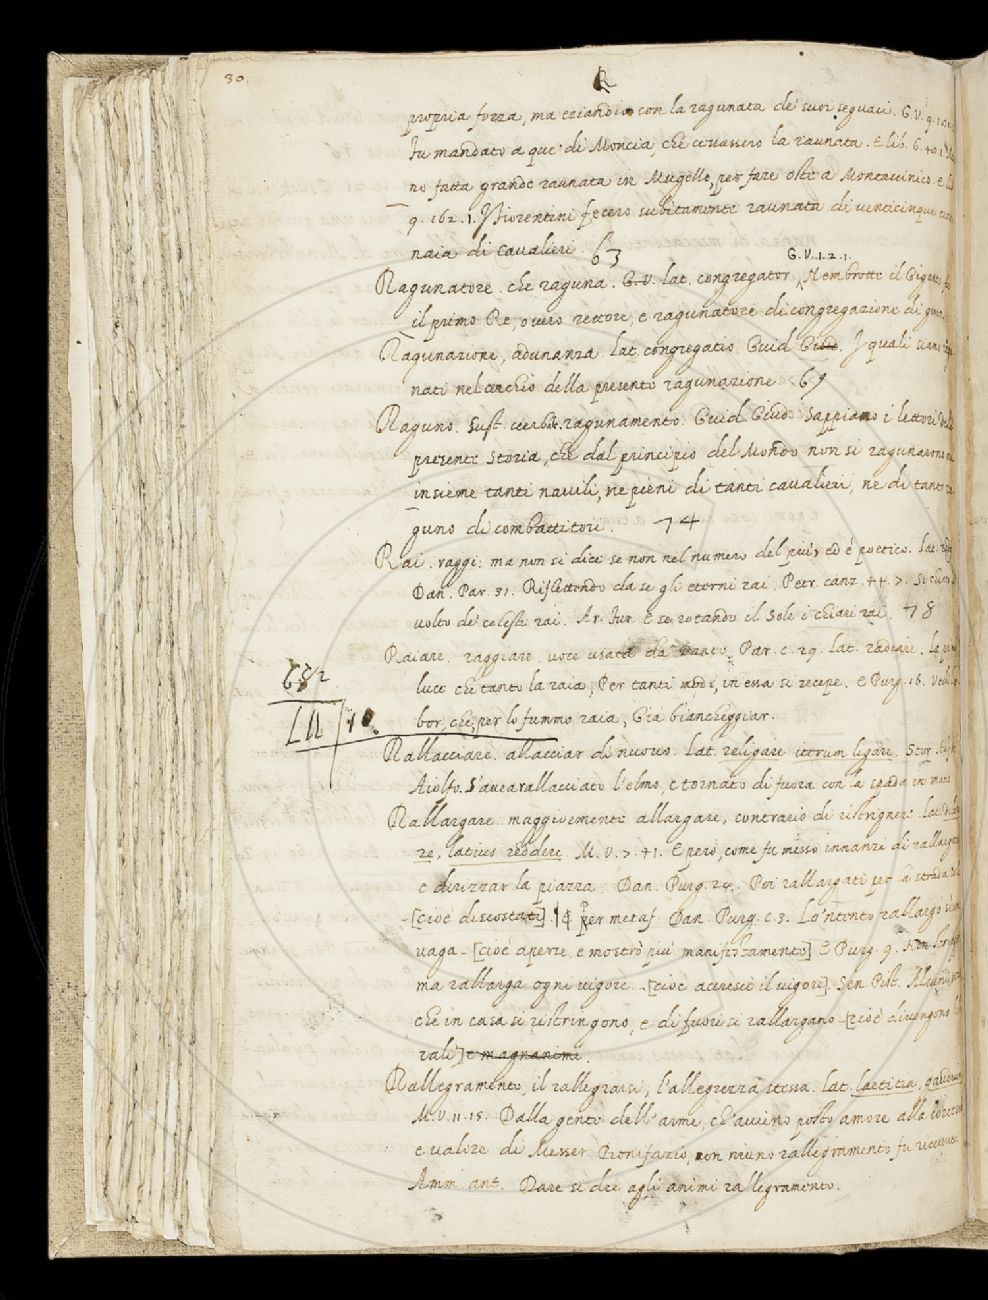 30.
R
propria forza, ma eziandio con la ragunata de' suoi seguaci. G. V. 9.
fu mandato a que' di Moncia, che cessassero la raunata. E lib. 6.
no fatta grande raunata in Mugello, per fare oste a Montaccinico. E
9. 162. 1. I Fiorentini fecero subitamente raunata di venticinque
naia di cavalieri. 63
G. V. 1. 2. 1.
Ragunatore. che raguna. G. V. lat. congregator. Nembrotte il Gigante
il primo Re, overo rettore, e ragunatore di congregazione di
Ragunazione, adunanza. lat. congregatio. Guid. Giud. I quali
nati nel cerchio della presente ragunazione. 69
Raguno. Sust. verbale. ragunamento. Guid. Giud. Sappiano i lettori della
presente storia, che dal principio del Mondo non si ragunarono
insieme tanti navili, ne pieni di tanti cavalieri, ne di tanto
guno di combattitori. 74
Rai. raggi: ma non si dice se non nel numero del più, ed è poetico. lat.
Dan. Par. 31. Riflettendo da se gli eterni rai. Petr. canz. 44. 7.
volto de' celesti rai. Ar. Fur. E se rotando il Sole i chiari rai. 78
Raiare. raggiare. voce usata da Dante. Par. c. 29. lat. radiare. La
luce che tanto la raia, Per tanti modi, in essa si recepe. E Purg. 16.
682
bor, che, per lo fummo raia, Già biancheggiar.
Rallacciare. allacciar di nuovo. lat. religare iterum ligare. Stor.
Aiolfo. S'avea rallacciato l'elmo, e tornato di fuora con la spada in mano
Rallargare. maggiormente allargare, contrario di ristrignere. lat.
re, latius reddere. M. V. 7. 41. E però, come fu messo innanzi di rallargare
e dirizzar la piazza. Dan. Purg. 24. Poi rallargati per la strada
[cioè discostati]. ¶ per metaf. Dan. Purg. c. 3. Lo 'ntento rallargò
vaga. [cioè aperse, e mostrò più manifestamente] E Purg. 9.
ma rallarga ogni vigore. [cioè accresce il vigore]. Sen. Pist. Alcuni
che in casa si ristringono, e di fuori si rallargano [cioè divengono
rali] e magnanimi.
Rallegramento, il rallegrarsi, l'allegrezza stessa. lat. laetitia, gaudium
M. V. 11. 18. Dalla gente dell'arme, ch'avieno posto amore alla
e valore di Messer Bonifazio, con niuno rallegramento fu ricevuto
Amm. ant. Dare si dee agli animi rallegramento.